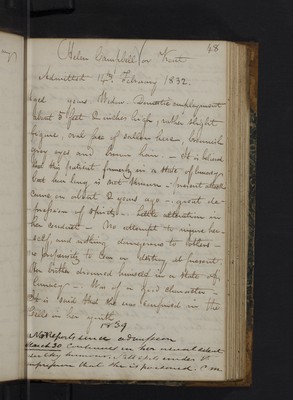 48
Helen Campbell or Kent
Admitted 14th February 1832.
Aged years Widow. Domestic employment
about 5 feet 2 inches high, rather slight
figure oval face of sallow hue, brownish
grey eyes and brown hair. - It is believed
that this patient formerly in a state of lunacy
but how long is not known - present attack
came on about 2 years ago - great de-
pression of spirits - little alteration in
her conduct - No attempt to injure her-
self, and nothing dangerous to others -
no propensity to tear or destroy at present.
Her brother drowned himself in a state of
lunacy - Was of a good character -
It is said that she was confused in the
in her youth
1839
No Reports since admission
March 30 Continues in her usual silent
and sulky humour. Still under the
impression that she is poisoned.